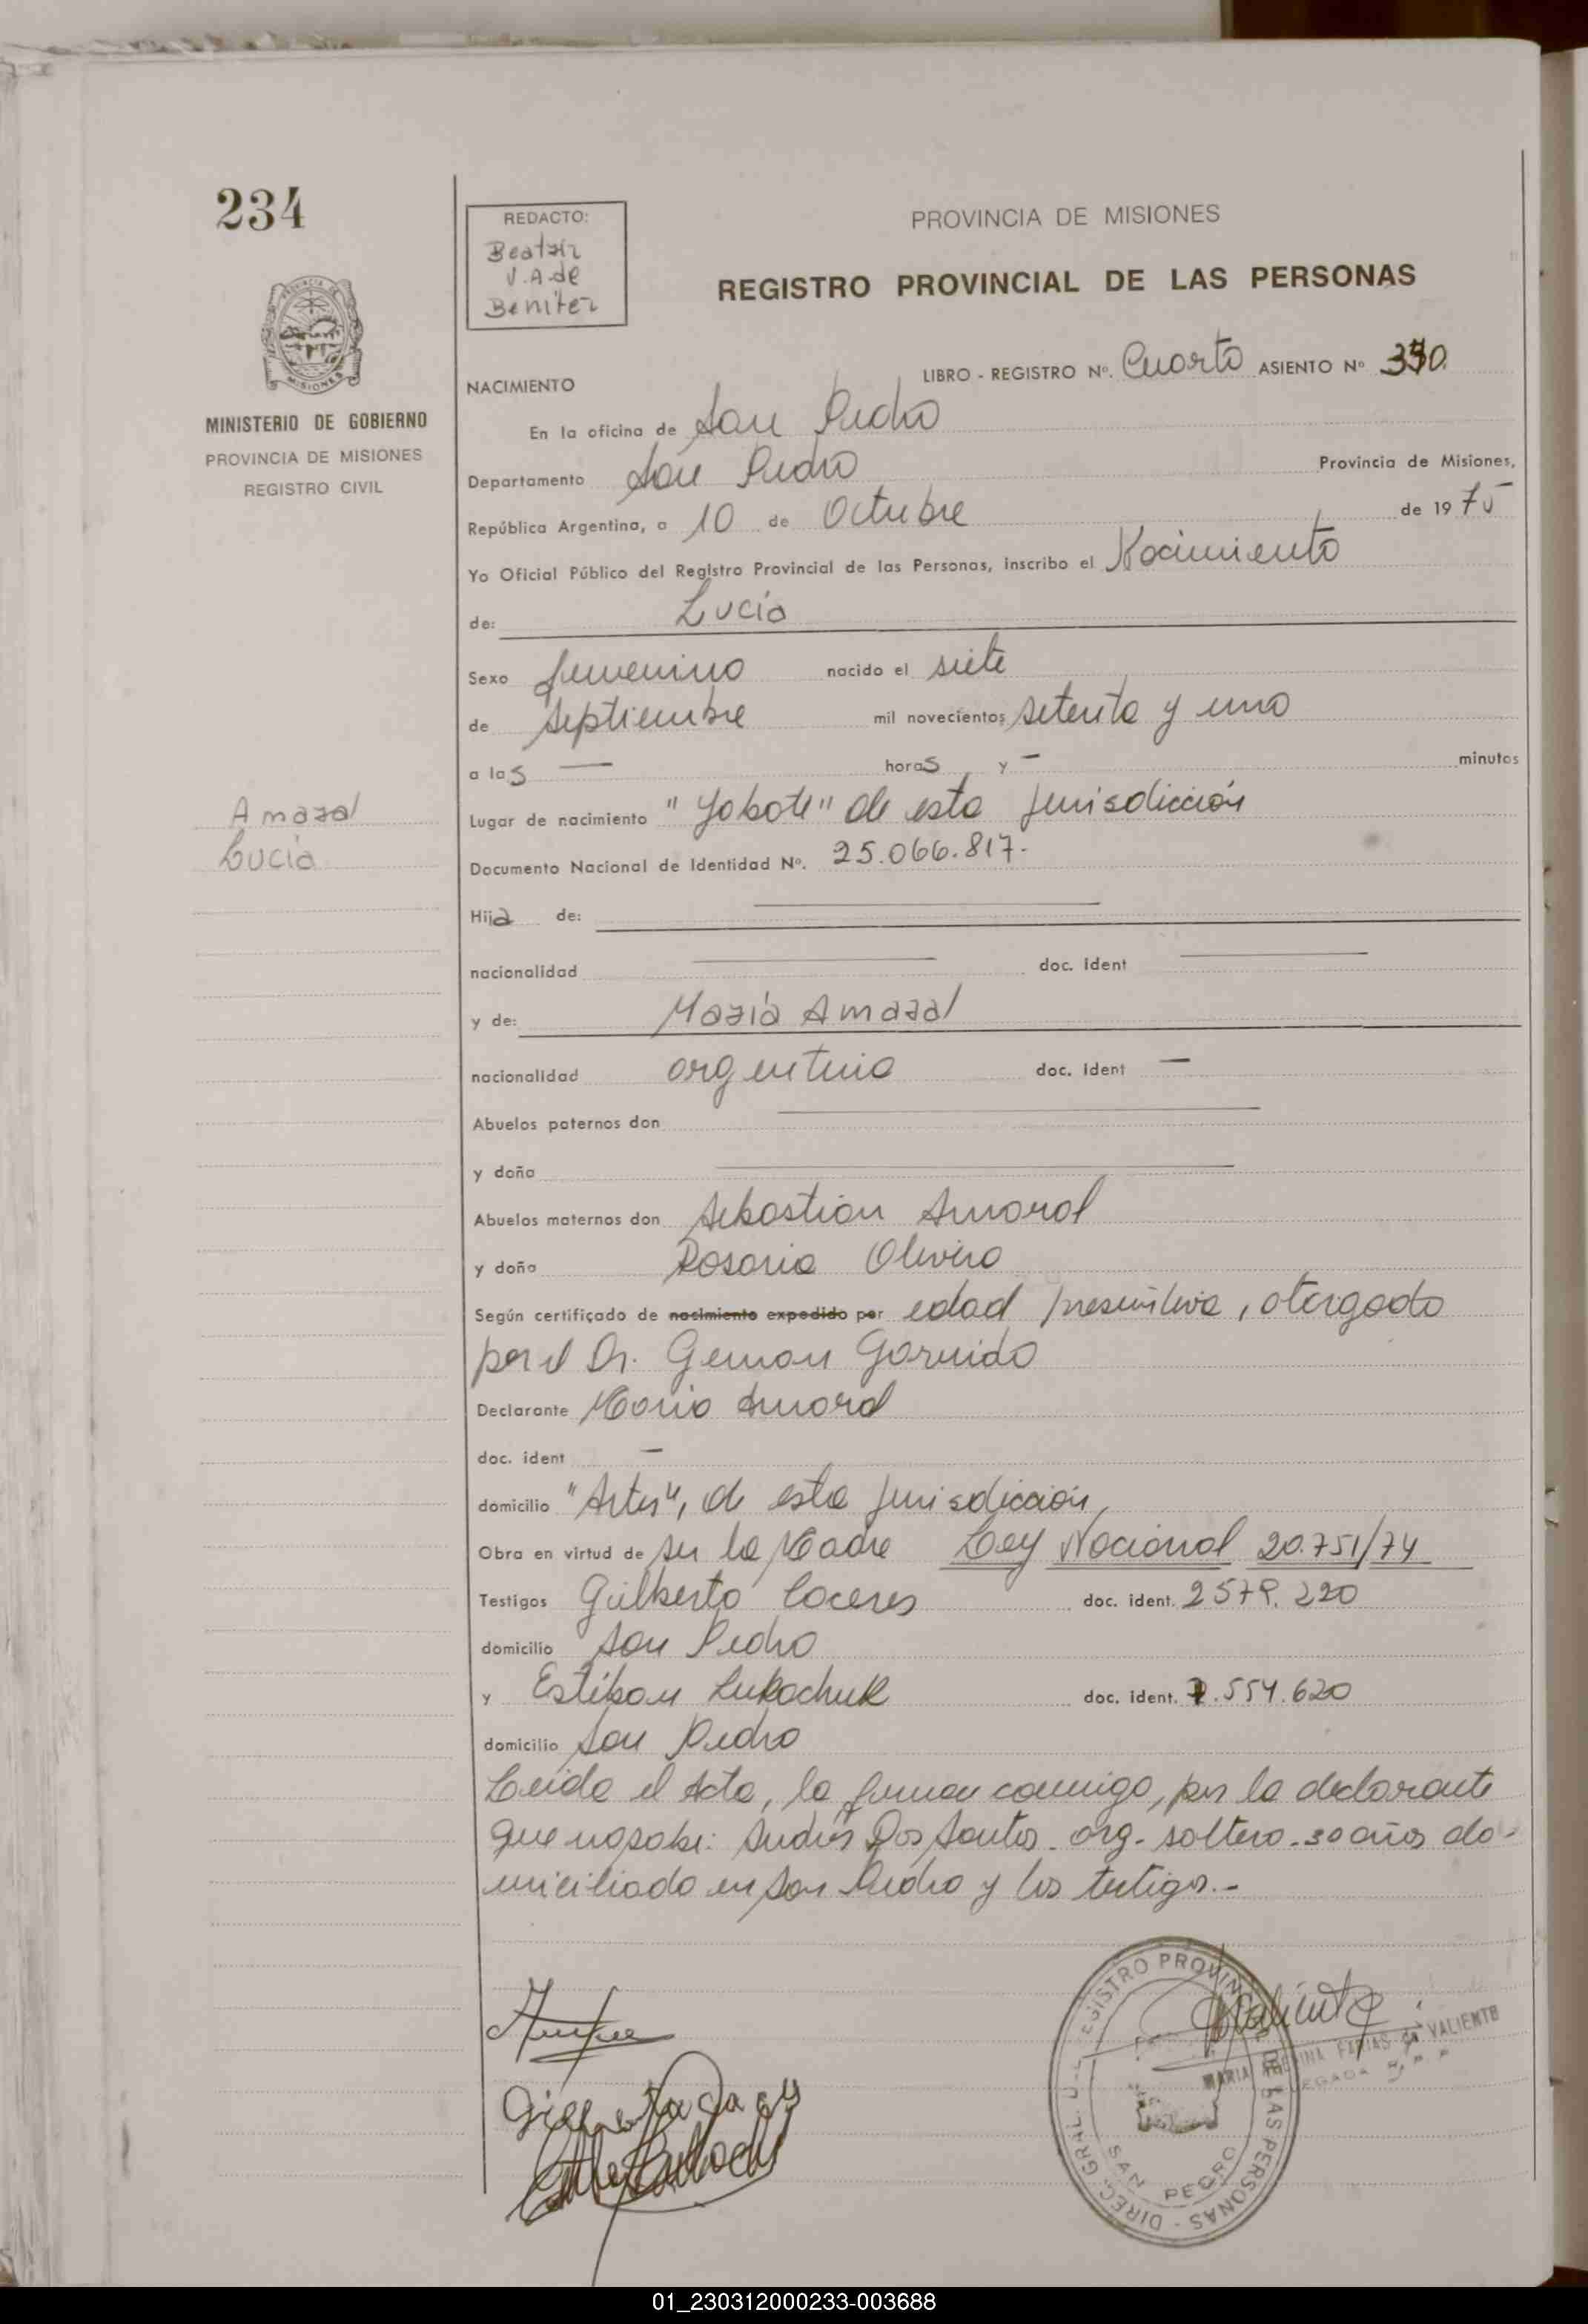 234
REDACTO:
Beatriz
V.A. de
Benitez
PROVINCIA DE MISIONES
REGISTRO PROVINCIAL DE LAS PERSONAS
MINISTERIO DE GOBIERNO
PROVINCIA DE MISIONES
REGISTRO CIVIL
NACIMIENTO
LIBRO - REGISTRO Nº. Cuarto ASIENTO Nº
En la oficina de San Pedro
Departamento San Pedro Provincia de Misiones,
República Argentina, a 10 de Octubre de 1975
Yo Oficial Público del Registro Provincial de las Personas, inscribo el Nacimiento
de: Lucía
Sexo femenino nacido el siete
de septiembre mil novecientos setenta y uno
a las — horas y — minutos
Amaral
Lucia
Lugar de nacimiento "Yabotí" de esta jurisdicción
Documento Nacional de Identidad Nº. 25.066.817.-
Hija de: —
nacionalidad — doc. ident —
y de: María Amaral
nacionalidad argentina doc. ident —
Abuelos paternos don —
y doña —
Abuelos maternos don Sebastian Amaral
y doña Rosaria Olivera
Según certificado de nacimiento expedido por edad presuntiva, otorgado
por el Dr. German Garrido
Declarante María Amaral
doc. ident —
domicilio de esta jurisdicción,
Obra en virtud de ser la Madre Ley Nacional 20.751/74
Testigos Gilberto Caceres doc. ident. 2579.220
domicilio San Pedro
y Estéban Lukachuk doc. ident. .554.620
domicilio San Pedro
Leida el Acta, la firman conmigo, por la declarante
que no sabe: Andrés Dos Santos - arg - soltero - 30 años do-
miciliado en San Pedro y los testigos.-
DIREC. GRAL. DEL REGISTRO PROVINCIAL DE LAS PERSONAS -
SAN PEDRO
MARIA FARIAS de VALIENTE
DELEGADA
01_230312000233-003688